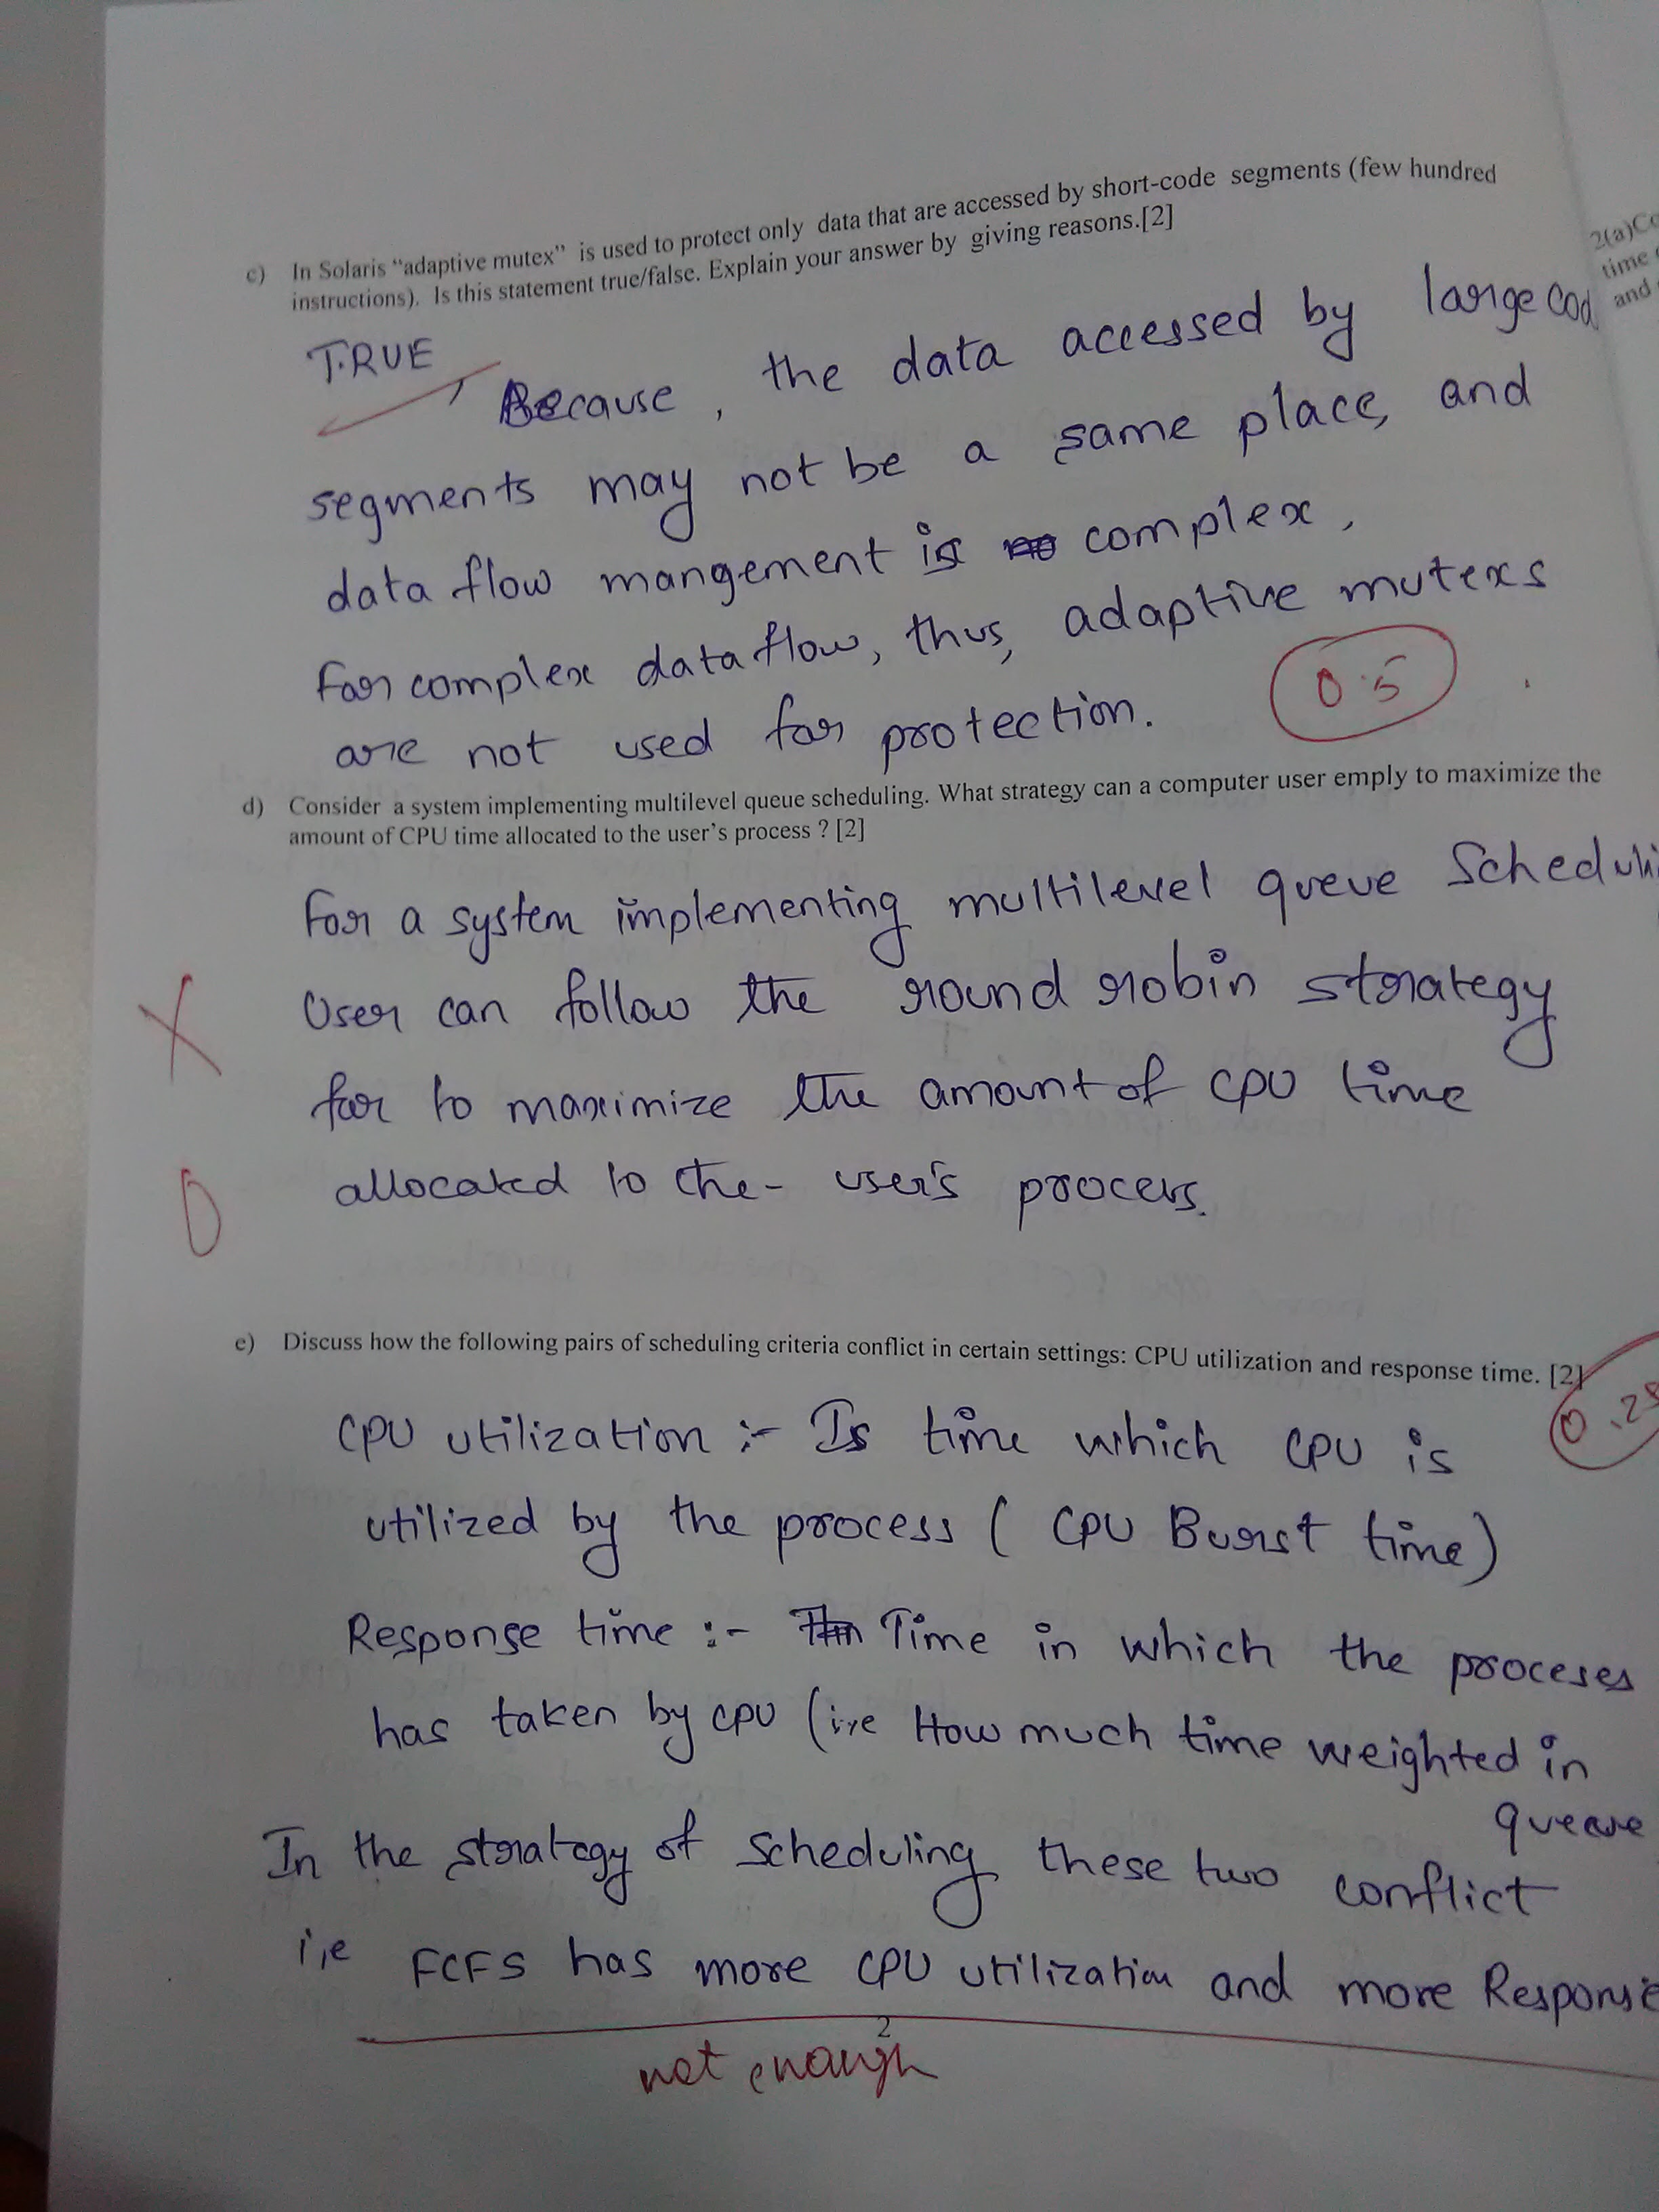 c) In Solaris “adaptive mutex” is used to protect only data that are accessed by short-code segments (few hundred
instructions). Is this statement true/false. Explain your answer by giving reasons.[2]
TRUE, Because, the data accessed by large cod
segments may not be a same place, and
data flow mangement is complex,
for complex data flow, thus, adaptive mutexs
are not used for protection.
0.5
d) Consider a system implementing multilevel queue scheduling. What strategy can a computer user emply to maximize the
amount of CPU time allocated to the user's process ? [2]
For a system implementing multilevel queue Scheduli
X
User can follow the round robin strategy
for to maximize the amount of CPU time
0
allocated to the- user's process.
e) Discuss how the following pairs of scheduling criteria conflict in certain settings: CPU utilization and response time. [2]
0.25
CPU utilization :- Is time which CPU is
utilized by the process ( CPU Burst time)
Response time :- Time in which the proceses
has taken by CPU (i,e How much time weighted in
queue
In the strategy of scheduling these two conflict
i,e FCFS has more CPU utilization and more Response
2
not enough
2(a)Co
time
and